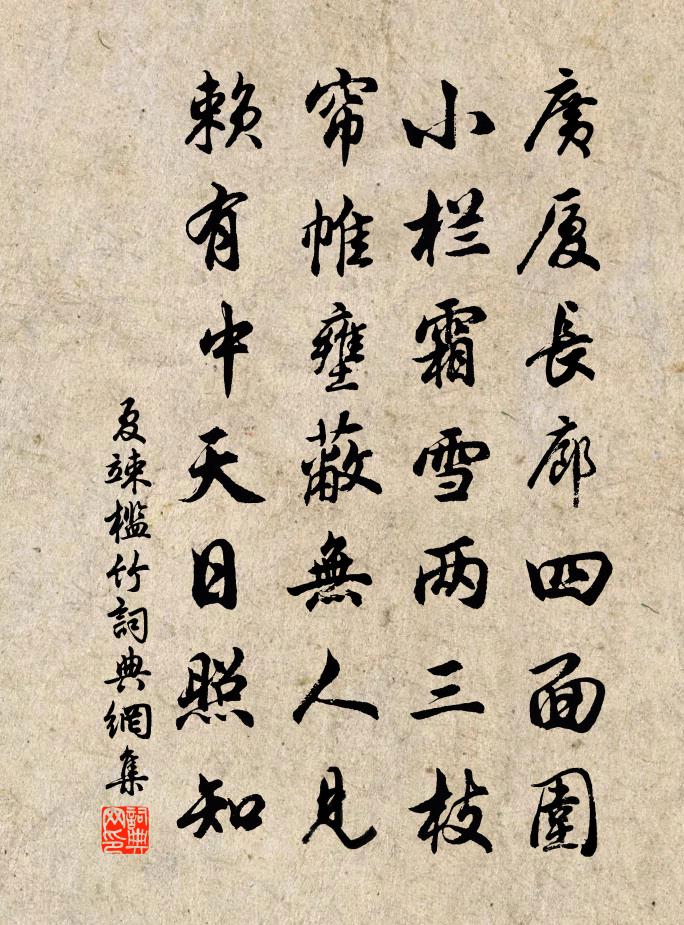 廣厦長廊四面圍
小栏霜雪两三枝
帘帷壅蔽無人見
賴有中天日照知
夏竦檻竹詞典網集
詞典網印